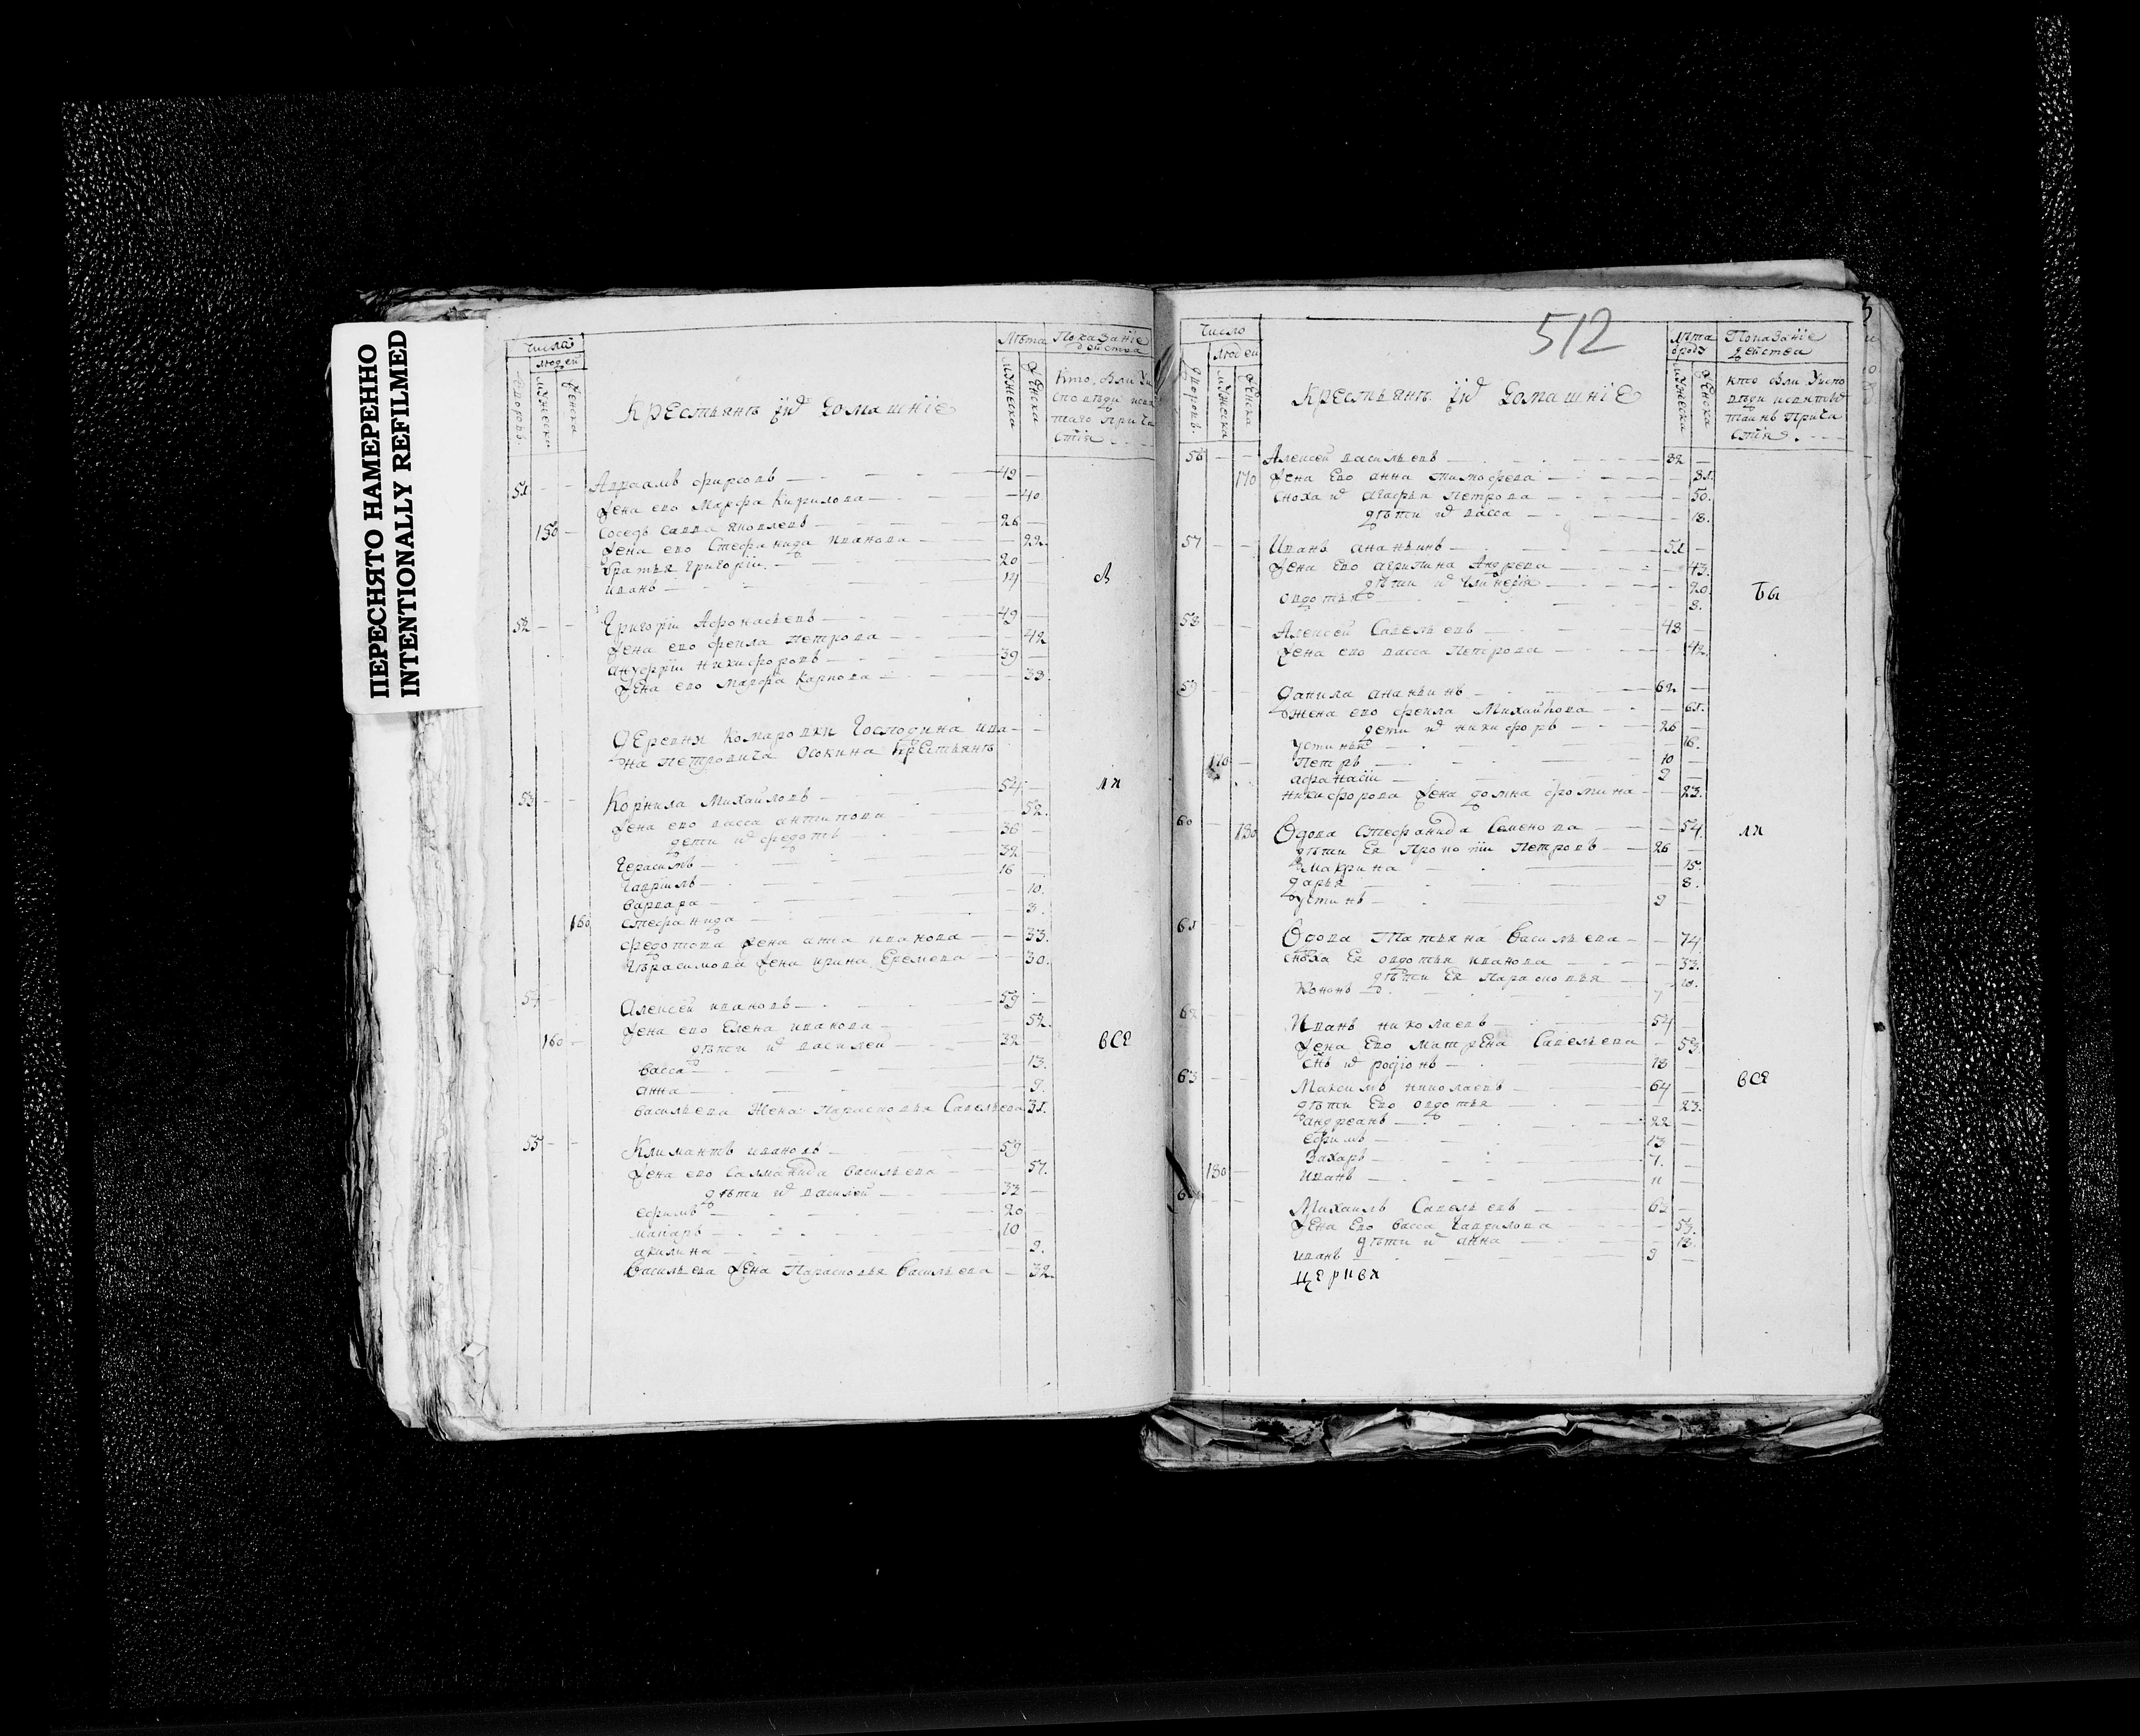 ПЕРЕСНЯТО НАМЕРЕННО
INTENTIONALLY REFILMED
Число
людей
дворовъ
мужеска
женска
Крестьянъ ихъ домашніе
Лѣта
мужеска
женска
Показаніе
действа
51 Авраамъ фирсовъ 49
Жена ево Марфа Кирилова 40
150 Соседъ Савва яковлевъ 26
Жена ево Стефанида иванова 22
братья григоріи 20
иванъ 14
52 Григоріи Афонасьевъ 49
Жена ево фекла петрова 42
Ануфріи никифоровъ 39
Жена ево Марфа Карпова 38
Деревни Комаровки Господина ива-
на петровича Осокина крестьянъ
53 Корнила Михайловъ 54
Жена ево васса антипова 52
дети их федотъ 36
Герасимъ 32
Гавріилъ 16
варвара 10
160 стефанида 3
федотова жена анна иванова 33
Герасимова жена ирина Еремева 30
54 Алексей ивановъ 59
Жена ево Елена иванова 52
160 дѣти их василей 32
васса 13
анна 9
васильева Жена Парасковья Савельева 31
55 Климантъ ивановъ 59
Жена ево Саламанида васильева 57
дѣти их василей 33
ефимъ 20
макаръ 10
акилина 9
васильева жена Парасковья васильева 32
А
ля
все
512
Число
людей
дворовъ
мужеска
женска
Крестьянъ ихъ домашніе
Лѣта
мужеска
женска
Показаніе
действа
кто были Уиспо
вѣди исвятых
таинъ Прича
стія
56 Алексей васильевъ 82
170 Жена Ево анна тимофеева 81
сноха их агафья петрова 50
дѣти их васса 18
57 Иванъ ананьинъ 51
Жена Ево агрипина Андрева 43
дѣти их гликерія 20
овдотья 8
58 Алексей Савельевъ 48
Жена ево васса Петрова 42
59 данила ананьинъ 62
жена ево фекла Михайлова 61
дети их никифоръ 26
устинья 16
170 Петръ 10
афанасіи 2
никифорова жена домна фомина 23
60 180 Вдова стефанида Семенова 54
дѣти Ея Прокопіи Петровъ 26
Макрина 15
дарья 8
устинъ 2
61 Вдова Татьяна васильева 74
сноха Ея овдотья иванова 33
дѣти Ея Парасковья
Кононъ 7
62 Иванъ николаевъ 54
Жена Ево матрена Савельева 53
снъ их родіонъ 18
63 Максимъ николаевъ 64
дѣти Ево овдотья 23
андреанъ 22
ефимъ 13
Захаръ 7
180 иванъ 11
Михаилъ Савельевъ 63
Жена Ево васса гаврилова 53
дѣти их анна 12
иванъ 9
церквя
бы
ля
все